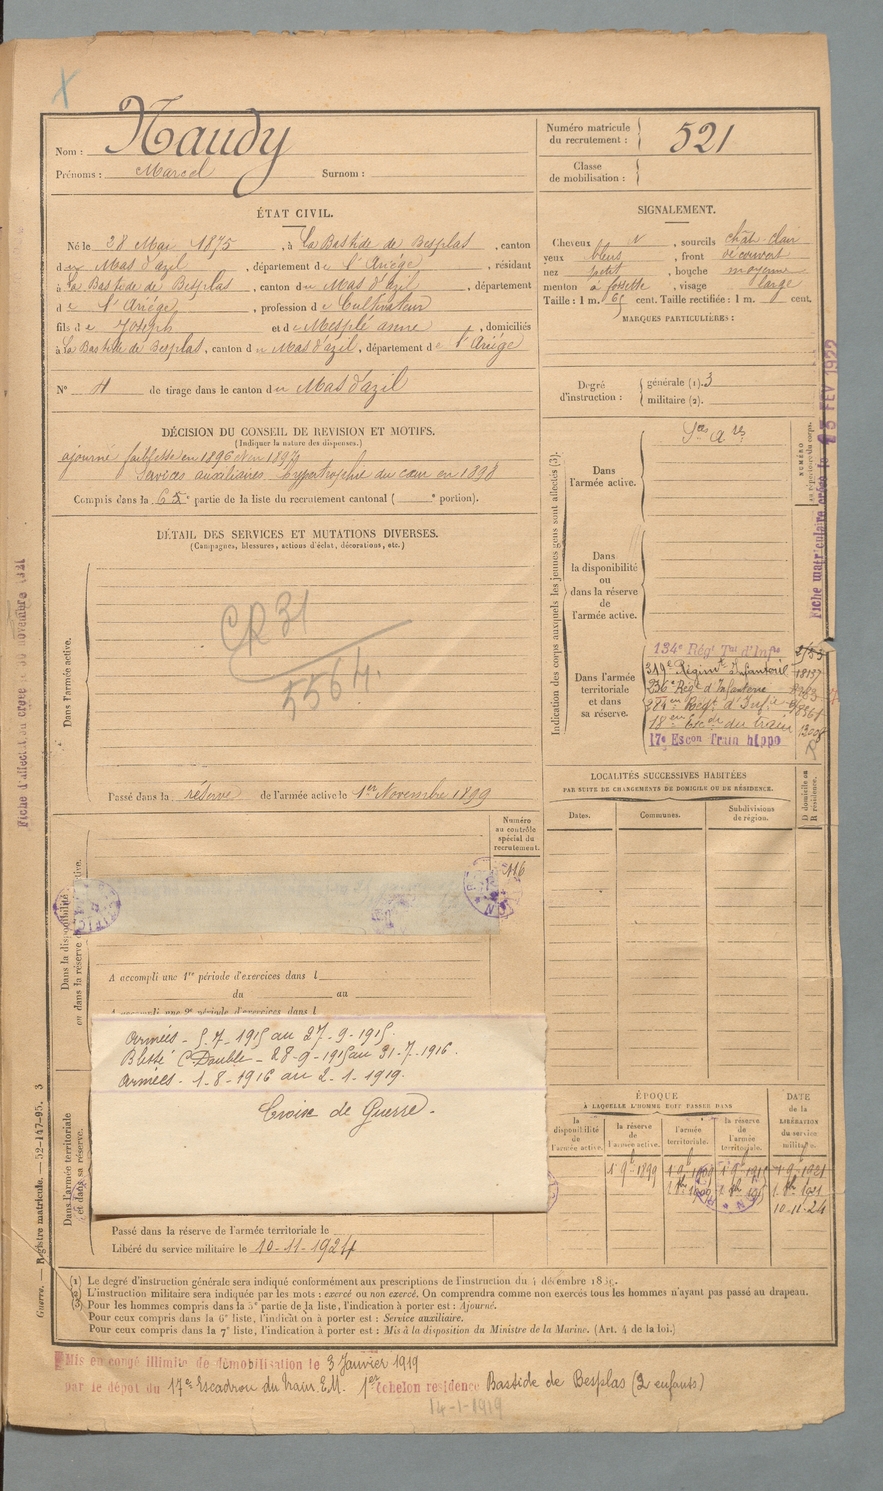 Nom : Naudy
Prénoms : Marcel Surnom :
Numéro matricule du recrutement : 521
Classe de mobilisation :
ÉTAT CIVIL.
Né le 28 Mai 1875, à La Bastide de Besplas, canton
du Mas d'azil, département de l'Ariége, résidant
à La Bastide de Besplas, canton du Mas d'azil, département
de l'Ariége, profession de Cultivateur
fils de Joseph et de Mesplé anne, domiciliés
à La Bastide de Besplas, canton du Mas d'azil, département de l'Ariége
N° 4 de tirage dans le canton du Mas d'azil
SIGNALEMENT.
Cheveux N, sourcils chât-clair
yeux bleus, front découvert
nez petit, bouche moyenne
menton à fossette, visage large
Taille : 1 m. 65 cent. Taille rectifiée : 1 m. cent.
MARQUES PARTICULIÈRES :
Degré d'instruction : générale (1). 3
militaire (2).
DÉCISION DU CONSEIL DE REVISION ET MOTIFS.
(Indiquer la nature des dispenses.)
ajourné faiblesse en 1896 et en 1897
Services auxiliaires hypertrophie du cœur en 1898
Compris dans la 6 5e partie de la liste du recrutement cantonal ( e portion).
DÉTAIL DES SERVICES ET MUTATIONS DIVERSES.
(Campagnes, blessures, actions d'éclat, décorations, etc.)
Dans l'armée active.
CR 31
5564.
Passé dans la réserve de l'armée active le 1er Novembre 1899
Indication des corps auxquels les jeunes gens sont affectés (3).
NUMÉRO au répertoire du corps.
Dans l'armée active.
Dans la disponibilité ou dans la réserve de l'armée active.
Dans l'armée territoriale et dans sa réserve.
134e Régt Tal d'Infie
319e Régimt Infanterie
236e Régt d'Infanterie
18eme Escon du train
17e Escon Train hippo
Fiche matriculaire créée le FEV 1922
Fiche d'affectation créée le 30 novembre 1921
LOCALITÉS SUCCESSIVES HABITÉES
PAR SUITE DE CHANGEMENTS DE DOMICILE OU DE RÉSIDENCE.
Dates. Communes. Subdivisions de région. D domicile ou R résidence.
Numéro au contrôle spécial du recrutement.
116
Dans la disponibilité ou dans la réserve de active.
A accompli une 1re période d'exercices dans l
du au
A accompli une 2e période d'exercices dans l
Armées - 5. 7. 1915 au 27-9-1915.
Blessé C. Double - 28-9-1915 au 31-7-1916.
Armées - 1-8-1916 au 2-1-1919.
Croix de Guerre.
Dans l'armée territoriale et dans sa réserve.
ÉPOQUE
À LAQUELLE L'HOMME DOIT PASSER DANS
la disponibilité de l'armée active. la réserve de l'armée active. l'armée territoriale. la réserve de l'armée territoriale.
DATE de la LIBÉRATION du service militaire.
1-9-1899 1-9-1909 1-9-1915 1-9-1921
10-11-24
Passé dans la réserve de l'armée territoriale le
Libéré du service militaire le 10-11-1924
(1) Le degré d'instruction générale sera indiqué conformément aux prescriptions de l'instruction du 4 décembre 18
(2) L'instruction militaire sera indiquée par les mots : exercé ou non exercé. On comprendra comme non exercés tous les hommes n'ayant pas passé au drapeau.
(3) Pour les hommes compris dans la 5e partie de la liste, l'indication à porter est : Ajourné.
Pour ceux compris dans la 6e liste, l'indication à porter est : Service auxiliaire.
Pour ceux compris dans la 7e liste, l'indication à porter est : Mis à la disposition du Ministre de la Marine. (Art. 4 de la loi.)
Guerre. — Registre matricule. — 52-147-95. 3
Mis en congé illimité de démobilisation le 3 Janvier 1919
par le dépôt du 17e Escadron du Train. E.M. 1er échelon residence Bastide de Besplas (2 enfants)
14-1-1919